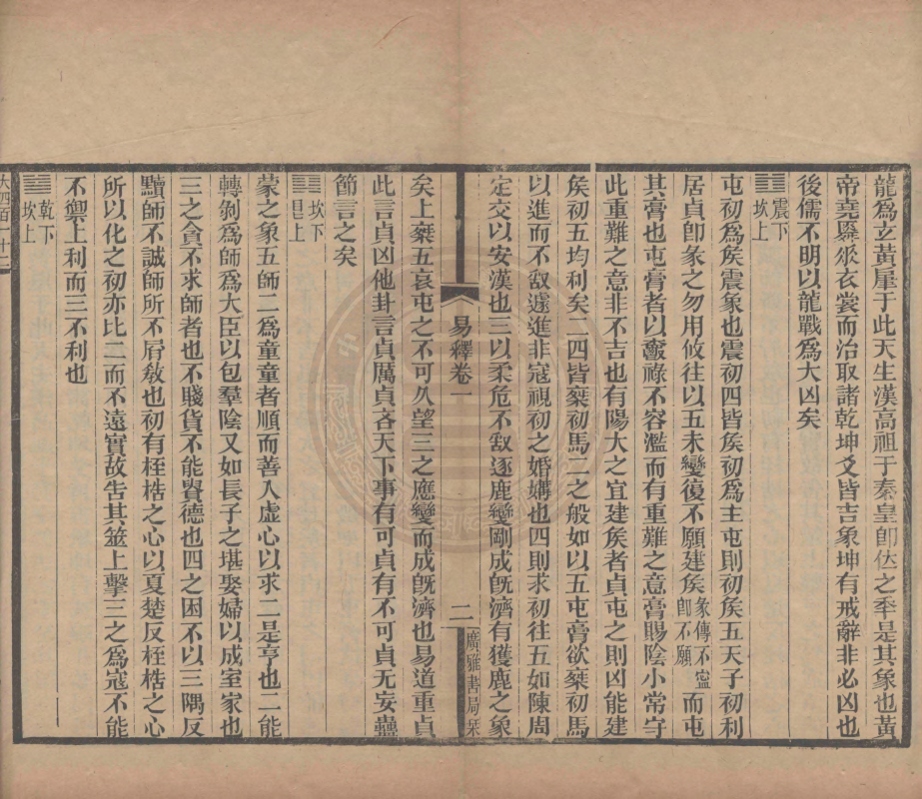 龍爲玄黃雇于此天生漢高祖于秦皇卽位之秊是其象也黃
帝堯舜垂衣裳而治取諸乾坤爻皆吉象坤有戒辭非必凶也
後儒不明以龍戰爲大凶矣
䷂震下坎上
屯初爲矦震象也震初四皆矦初爲主屯則初矦五天子初利
居貞卽彖之勿用攸往以五未變復不願建矦彖傳不寍卽不願而屯
其膏也屯膏者以爵祿不容濫而有重難之意膏賜陰小常守
此重難之意非不吉也有陽大之宜建矦者貞屯之則凶能建
矦初五均利矣二四皆棄初馬二之般如以五屯膏欲棄初馬
以進而不叡遽進非寇視初之婚媾也四則求初往五如陳周
定交以安漢也三以柔危不叡逐鹿變剛成旣濟有獲鹿之象
易釋卷一
二
廣雅書局栞
矣上棄五哀屯之不可久望三之應變而成旣濟也易道重貞
此言貞凶他卦言貞厲貞吝天下事有可貞有不可貞无妄蠱
節言之矣
䷃坎下艮上
蒙之象五師二爲童童者順而善入虛心以求二是亨也二能
轉剝爲師爲大臣以包羣陰又如長子之堪娶婦以成室家也
三之貪不求師者也不賤貨不能貴德也四之困不以三隅反
黷師不誠師所不屑敎也初有桎梏之心以夏楚反桎梏之心
所以化之初亦比二而不遠實故告其筮上擊三之爲寇不能
不禦上利而三不利也
䷄乾下坎上
大四百一十二